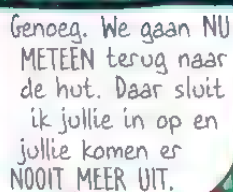 Genoeg. We gaan NU
METEEN terug naar
de hut. Daar sluit
ik jullie in op en
jullie komen er
NOOIT MEER UIT.